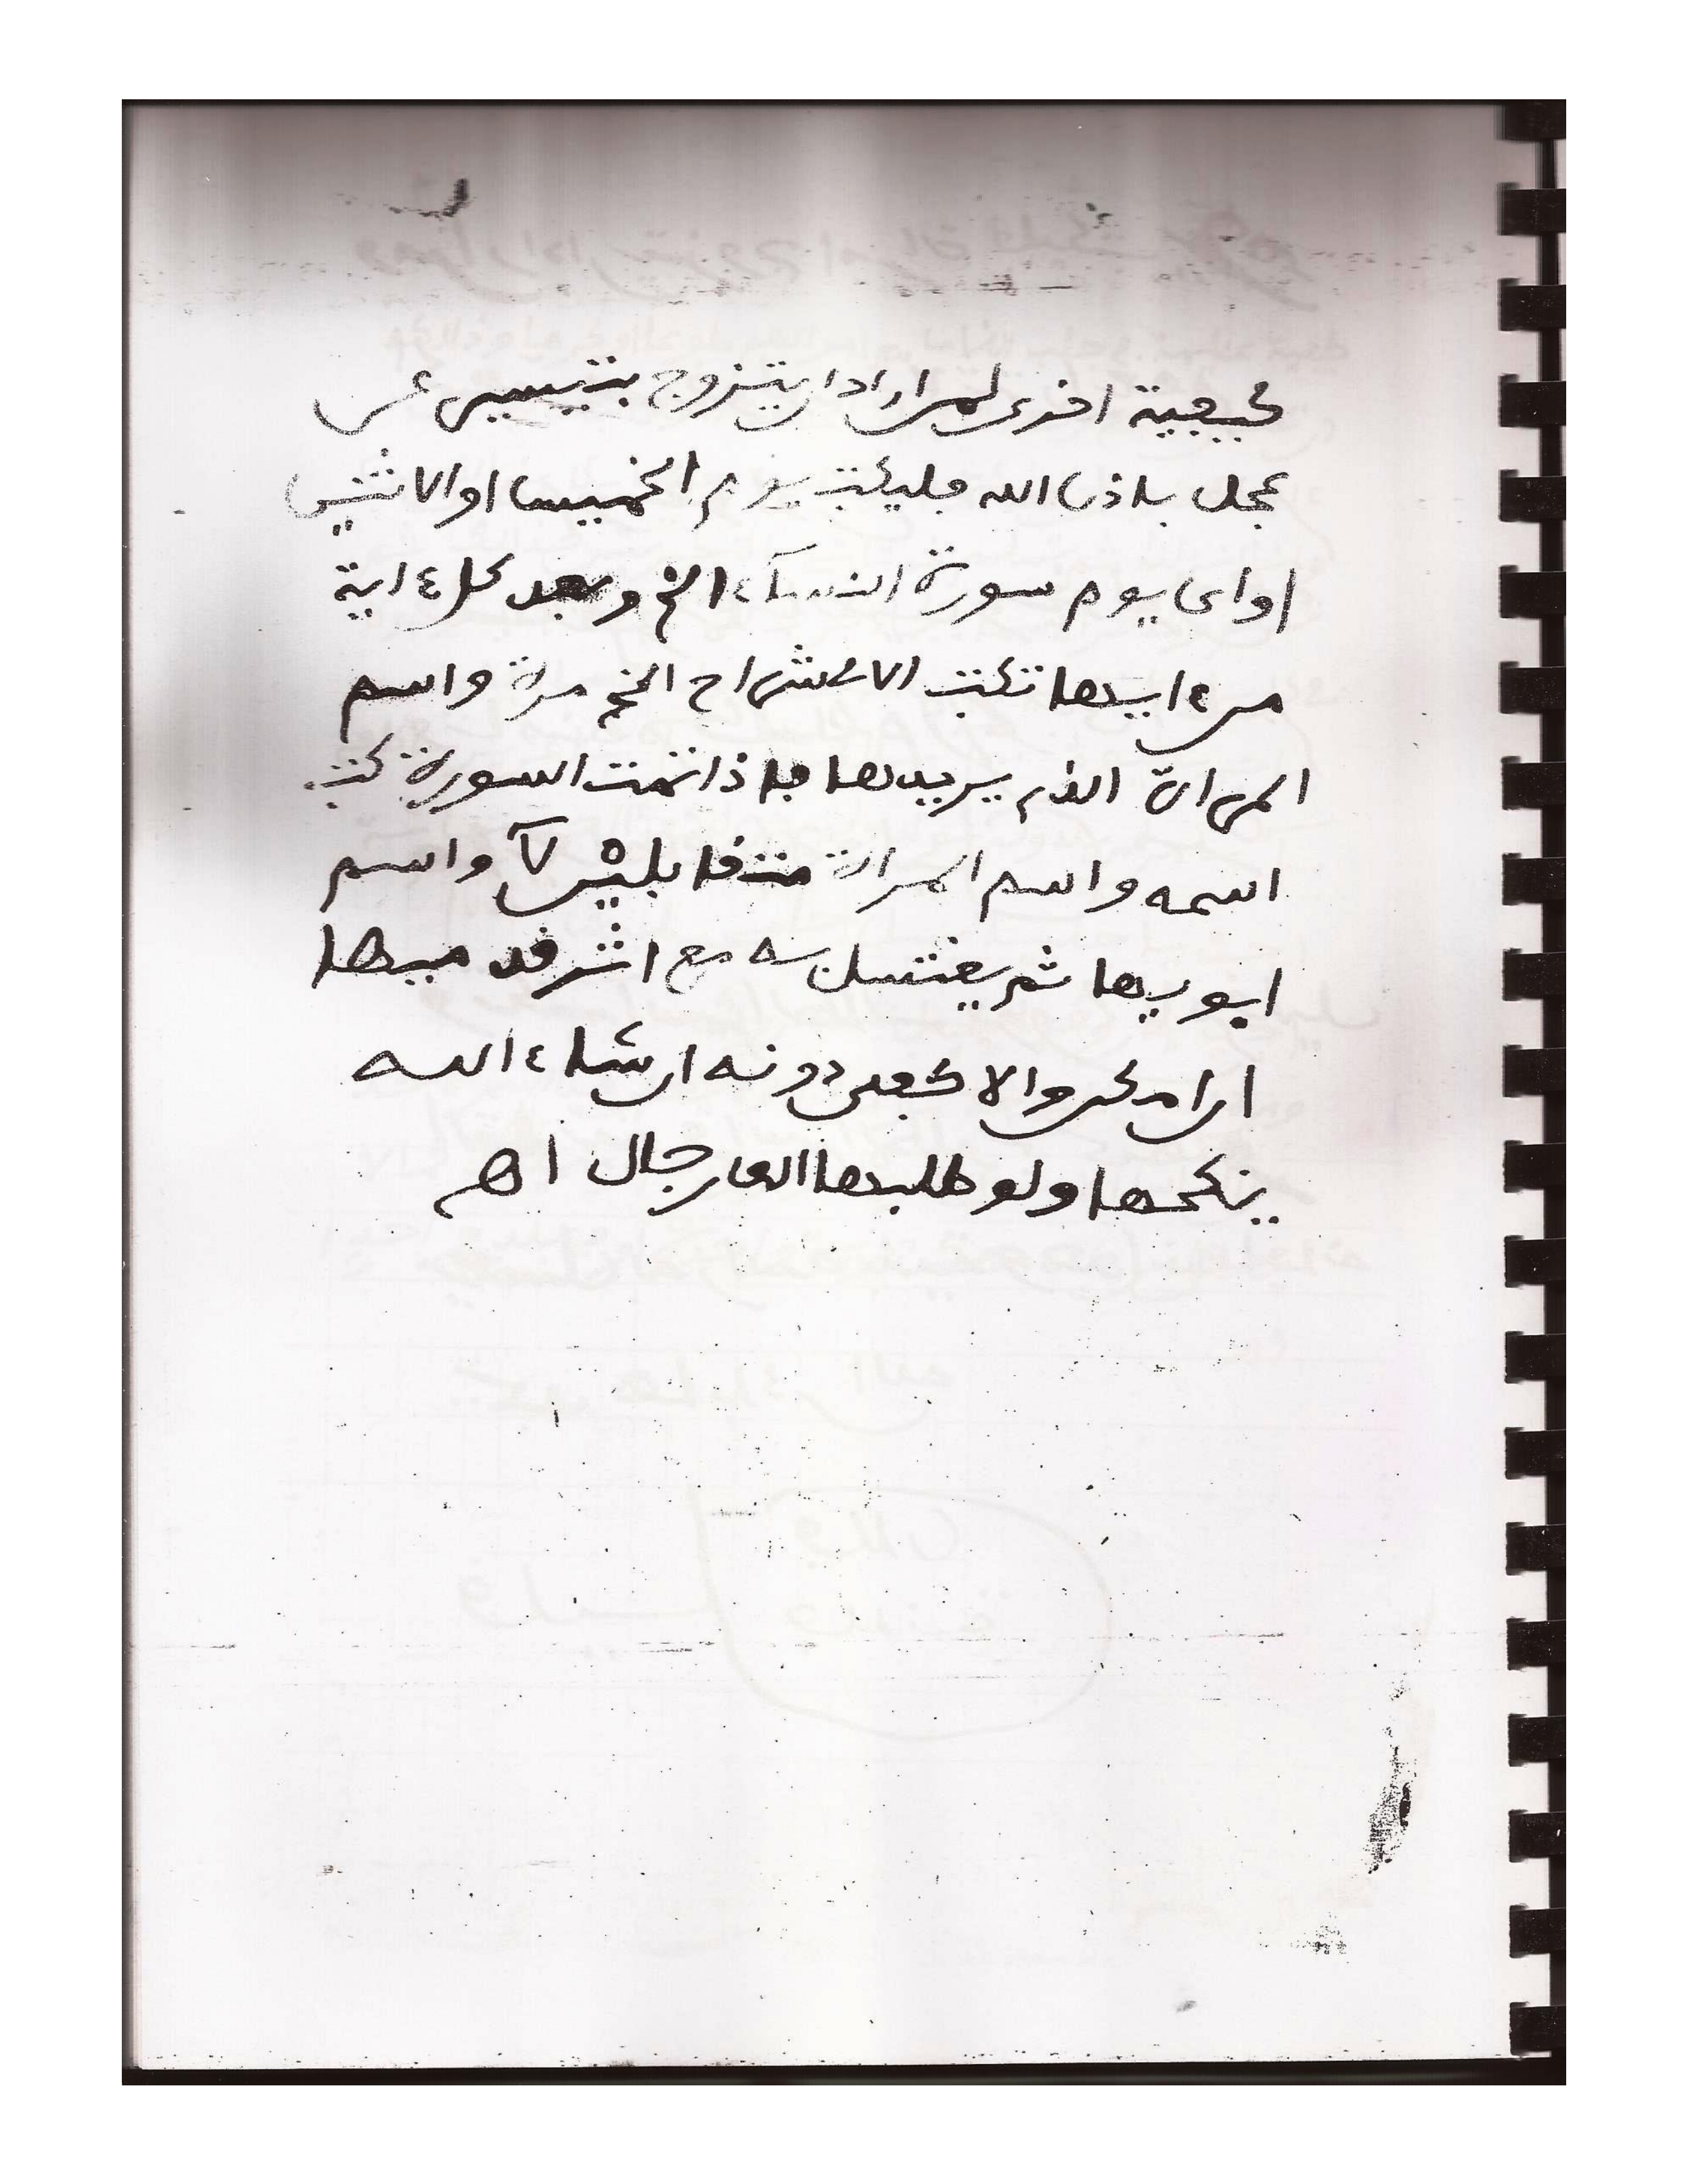 كيفية اخرى لمن اراد ان يتزوج بتيسير عن
عجل باذن الله فليكتب يوم الخميس او الاثنين
او اى يوم سورة النساء الخ وبعد كل ء اية
من ءاييها تكتب الانشراح الخ مرة واسم
المراة الذى يريدها فاذا تمت السورة كتب
اسمه واسم المراة واسم
ابويها ثم يغتسل به مع فيها
ان امكن والا فبعد دونه ان شاء الله
ينكحها ولو طلبها الف رجال اهـ